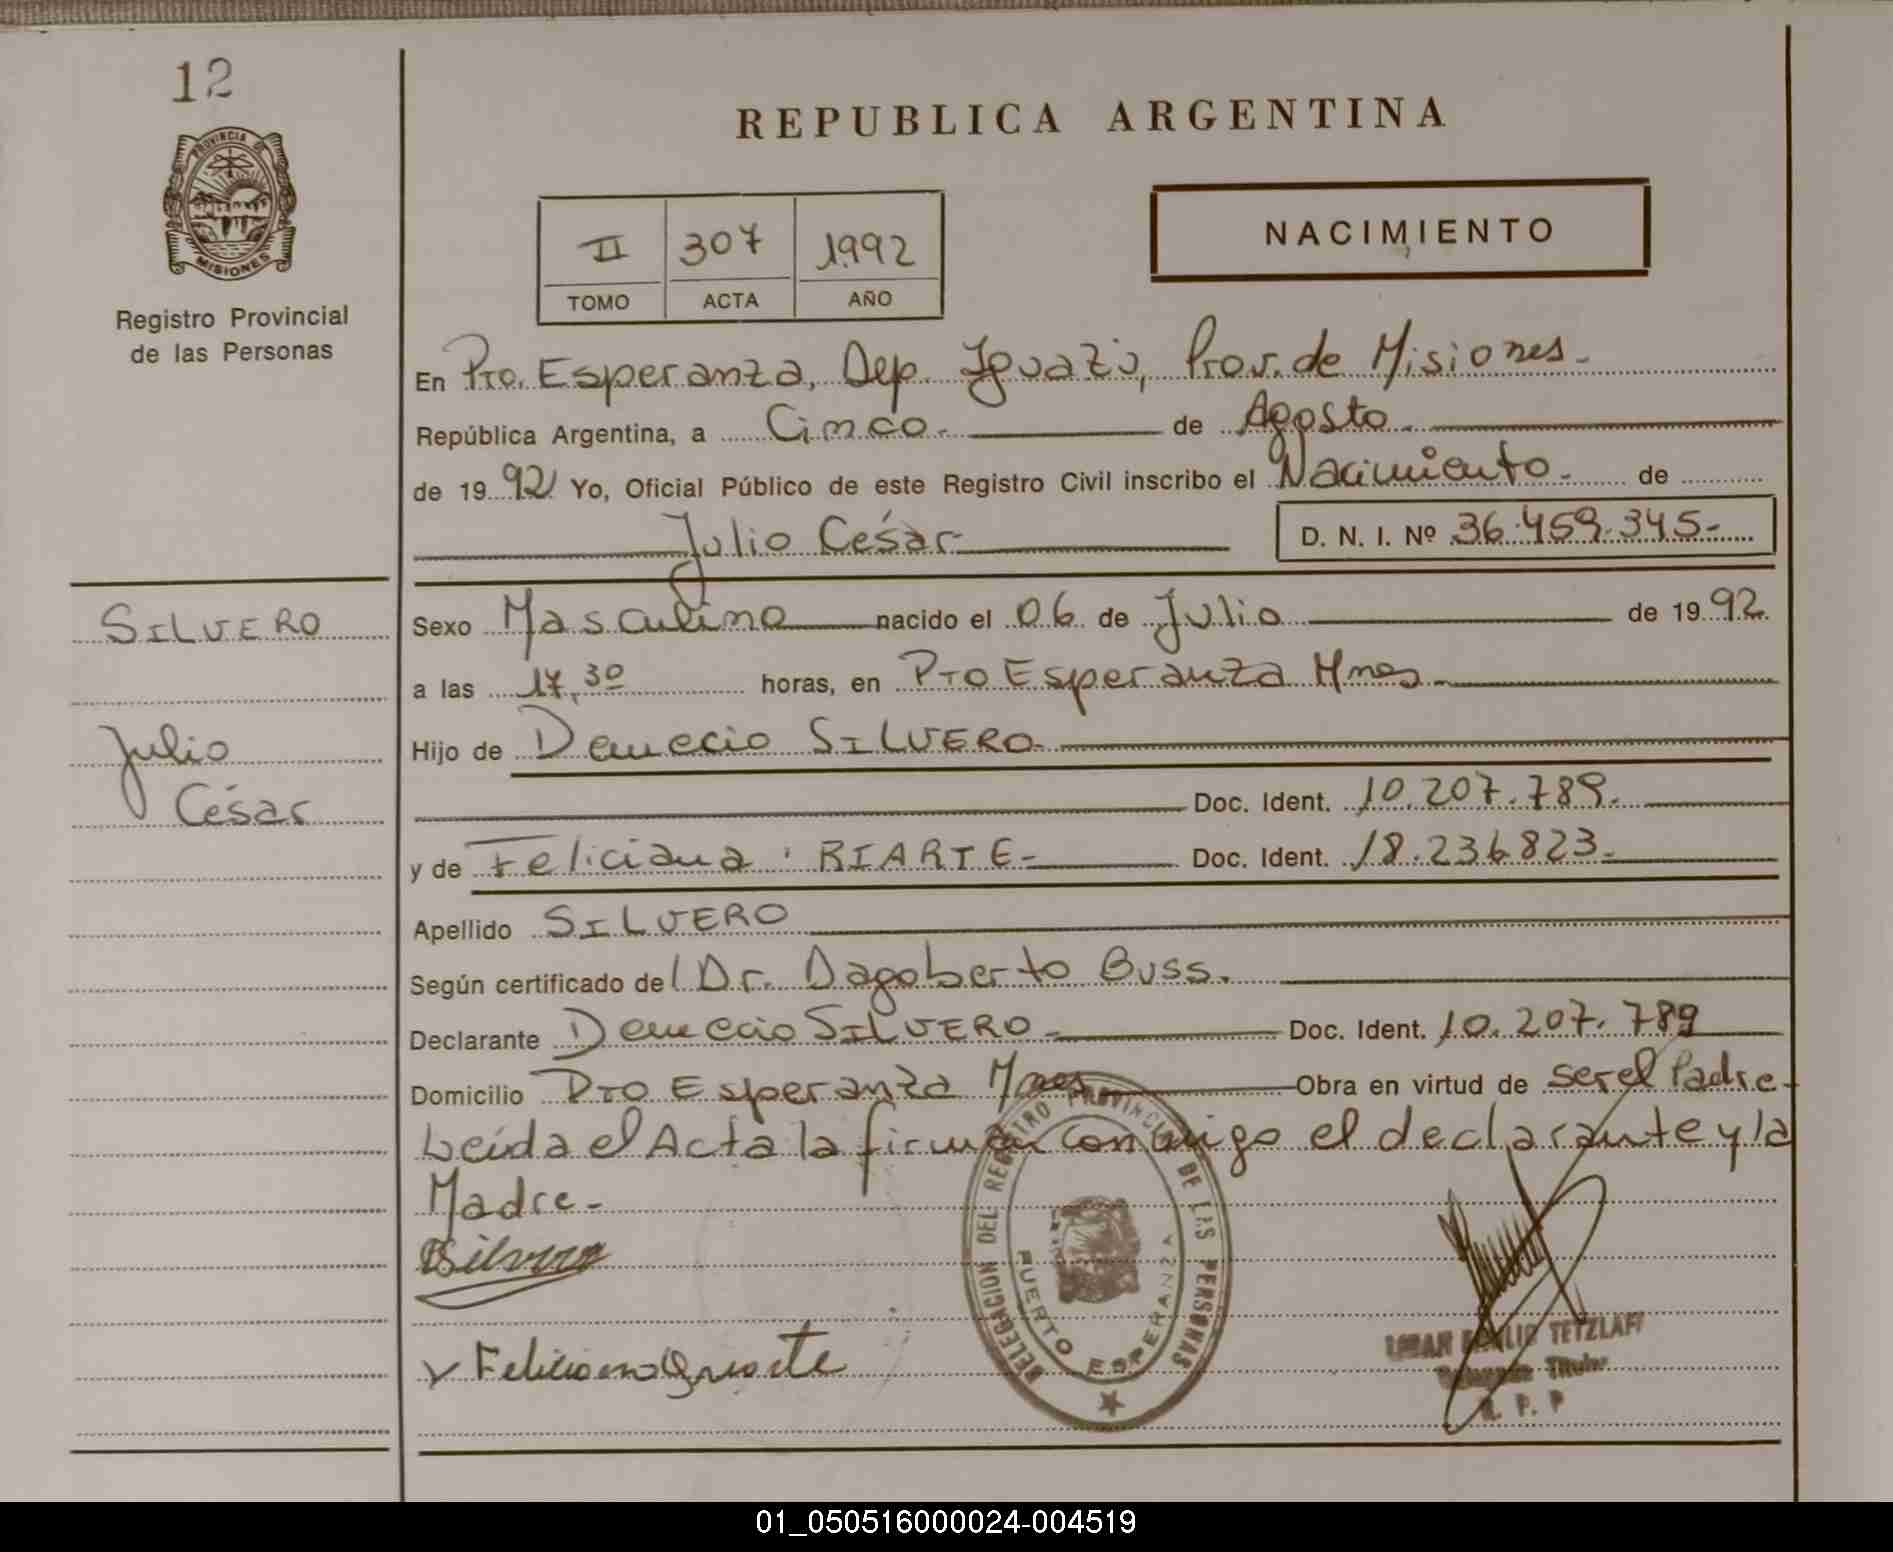 12
PROVINCIA DE
MISIONES
Registro Provincial
de las Personas
REPUBLICA ARGENTINA
II 307 1992
TOMO ACTA AÑO
NACIMIENTO
En Pto. Esperanza, Dep. Iguazú, Prov. de Misiones.-
República Argentina, a Cinco.- de Agosto.
de 1992 Yo, Oficial Público de este Registro Civil inscribo el Nacimiento.- de
Julio César- D. N. I. Nº 36.459.345-
SILVERO
Sexo Masculino nacido el 06 de Julio de 1992.
a las 17,30 horas, en Pto Esperanza Mnes.
Julio
César
Hijo de Demecio SILVERO-
Doc. Ident. 10.207.789.
y de Feliciana RIARTE- Doc. Ident. 18.236823-
Apellido SILVERO
Según certificado del Dr. Dagoberto Buss.
Declarante Demecio SILVERO- Doc. Ident. 10.207.789
Domicilio Pto Esperanza Mnes Obra en virtud de ser el Padre-
Leída el Acta la firman conmigo el declarante y la
Madre-
DELEGACION DEL REGISTRO PROVINCIAL DE LAS PERSONAS
PUERTO ESPERANZA
TETZLAFF
Titular
R. P. P
01_050516000024-004519